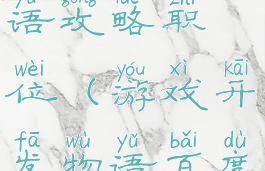 yǔ gōng lüè zhí
语攻略职
wèi yóu xì kāi
位(游戏开
fā wù yǔ bǎi dù
发物语百度